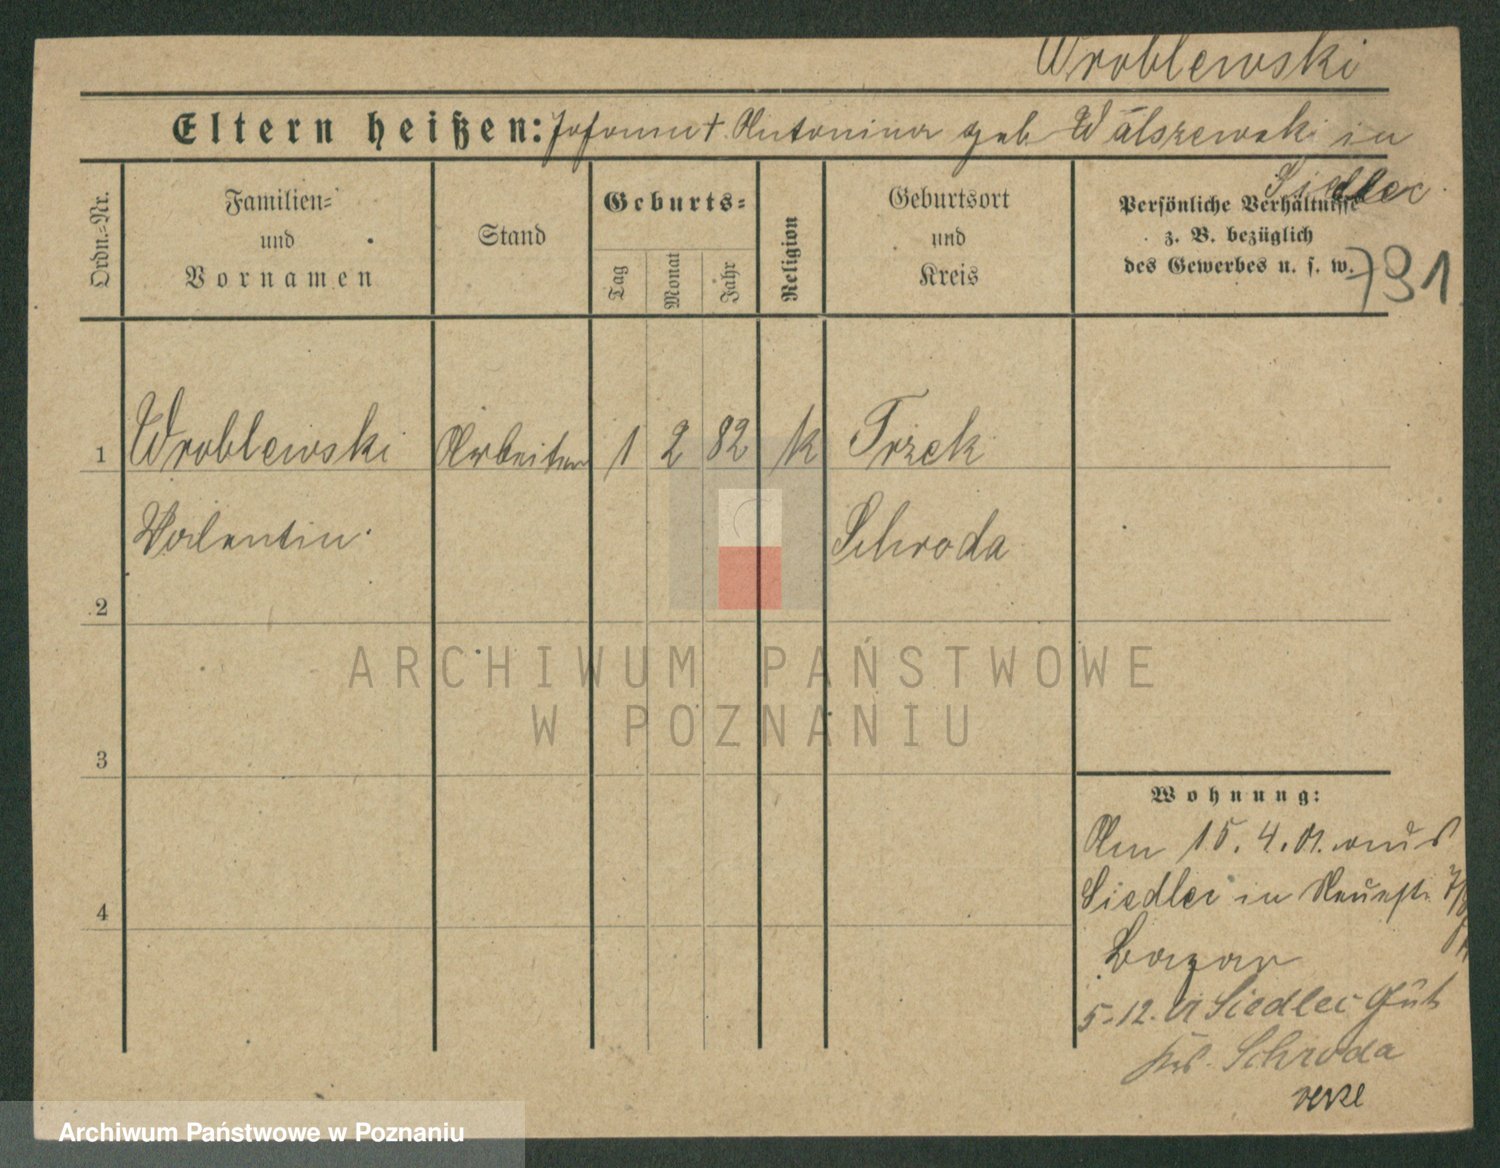 Wroblewski
Eltern heißen: Johann + Antonina geb Walszewski in
Siedlec.
Ordn.-Nr.
Familien-
und
Vornamen
Stand
Geburts-
Tag
Monat
Jahr
Religion
Geburtsort
und
Kreis
Persönliche Verhältnisse
z. B. bezüglich
des Gewerbes u. s. w.
791
1 Wroblewski Arbeiter 1 2 82 K Trzek
Valentin. Schroda
2
3
4
Wohnung:
Am 15. 4. 01. aus
Siedlec in Neuestr.
Bazar
5-12. 01 Siedlec Gut
Krs. Schroda
ARCHIWUM PAŃSTWOWE
W POZNANIU
Archiwum Państwowe w Poznaniu